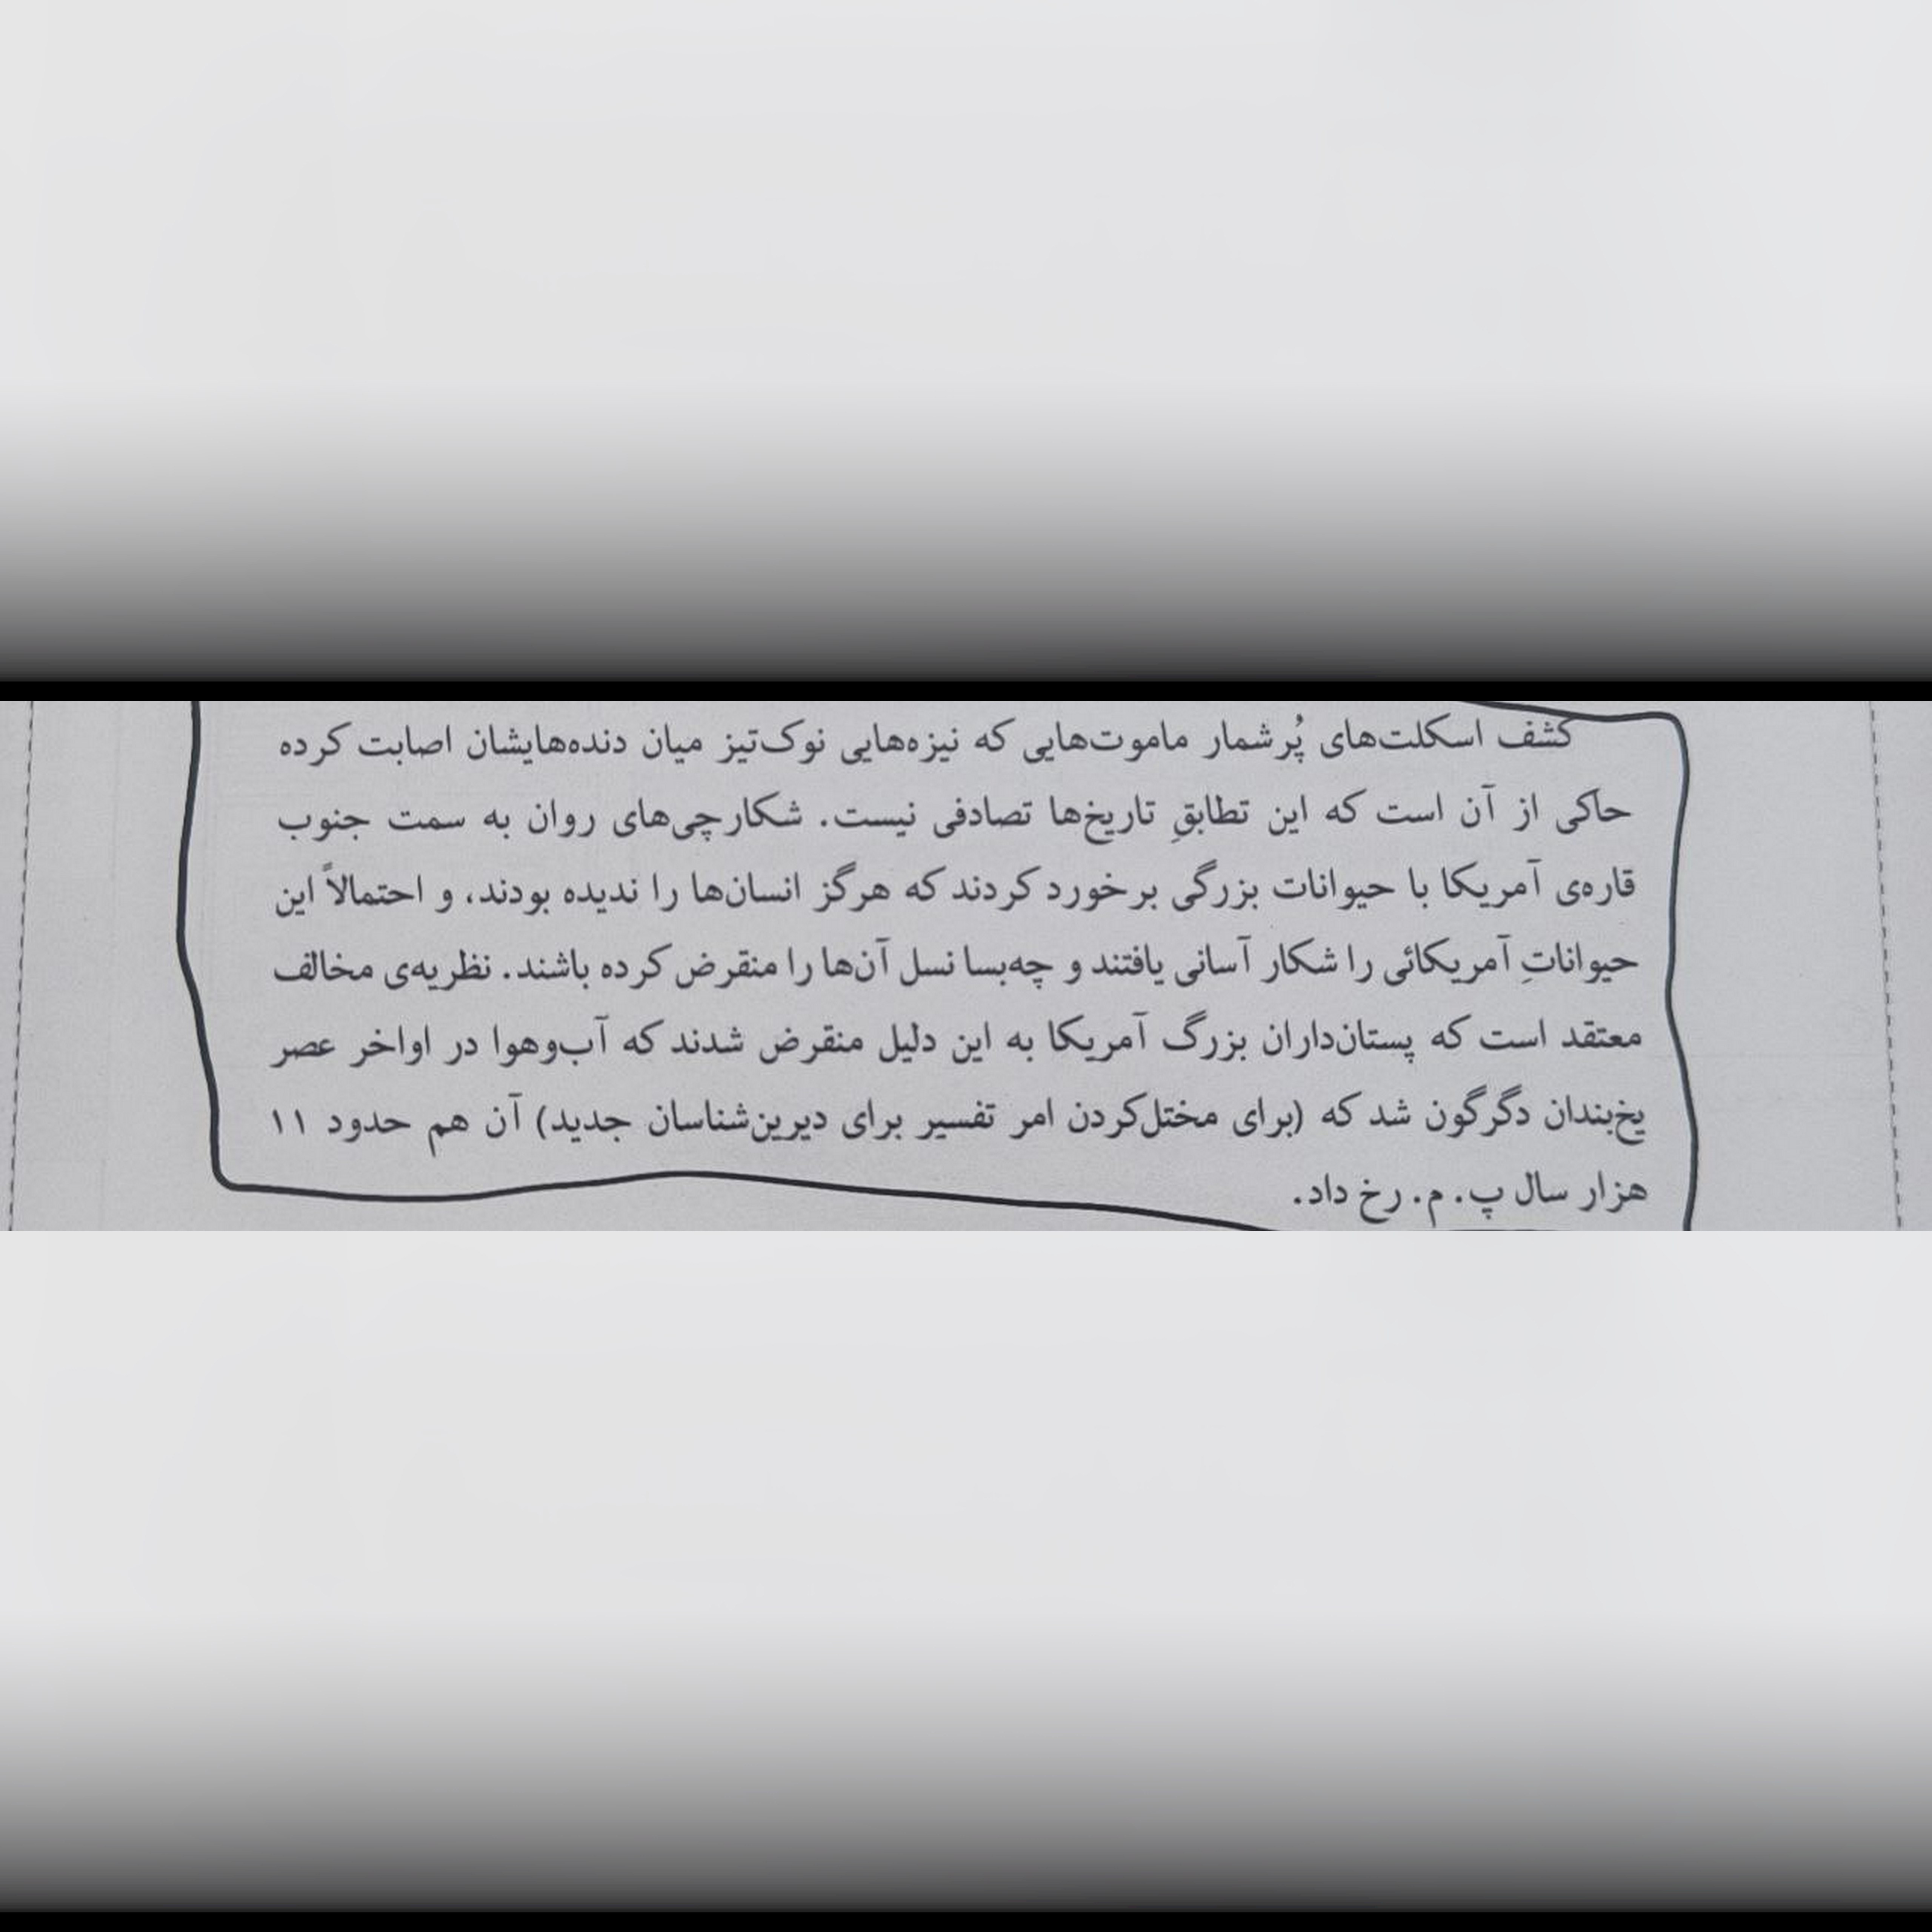 کشف اسکلت‌های پُرشمار ماموت‌هایی که نیزه‌هایی نوک‌تیز میان دنده‌هایشان اصابت کرده
حاکی از آن است که این تطابقِ تاریخ‌ها تصادفی نیست. شکارچی‌های روان به سمت جنوب
قاره‌ی آمریکا با حیوانات بزرگی برخورد کردند که هرگز انسان‌ها را ندیده بودند، و احتمالاً این
حیواناتِ آمریکائی را شکار آسانی یافتند و چه‌بسا نسل آن‌ها را منقرض کرده باشند. نظریه‌ی مخالف
معتقد است که پستان‌داران بزرگ آمریکا به این دلیل منقرض شدند که آب‌وهوا در اواخر عصر
یخ‌بندان دگرگون شد که (برای مختل‌کردن امر تفسیر برای دیرین‌شناسان جدید) آن هم حدود ۱۱
هزار سال پ. م. رخ داد.